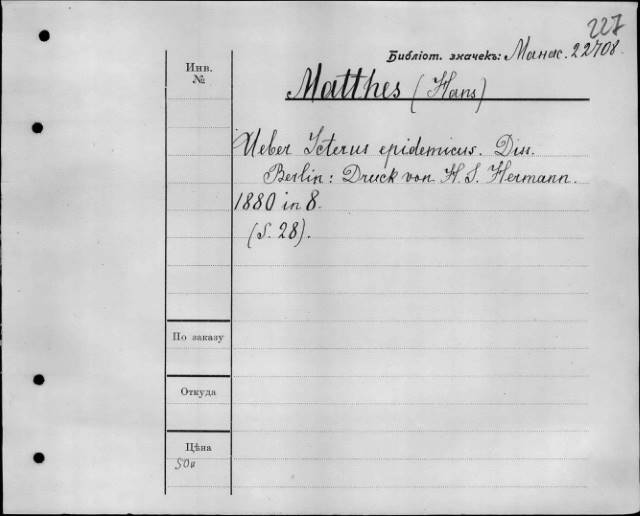 227
Библіот. значекъ: Манас. 22708.
Инв.
№
Matthes (Hans)
Ueber Icterus epidemicus. Diss.
Berlin: Druck von H. S. Hermann.
1880 in 8.
(S. 28).
По заказу
Откуда
Цѣна
50к